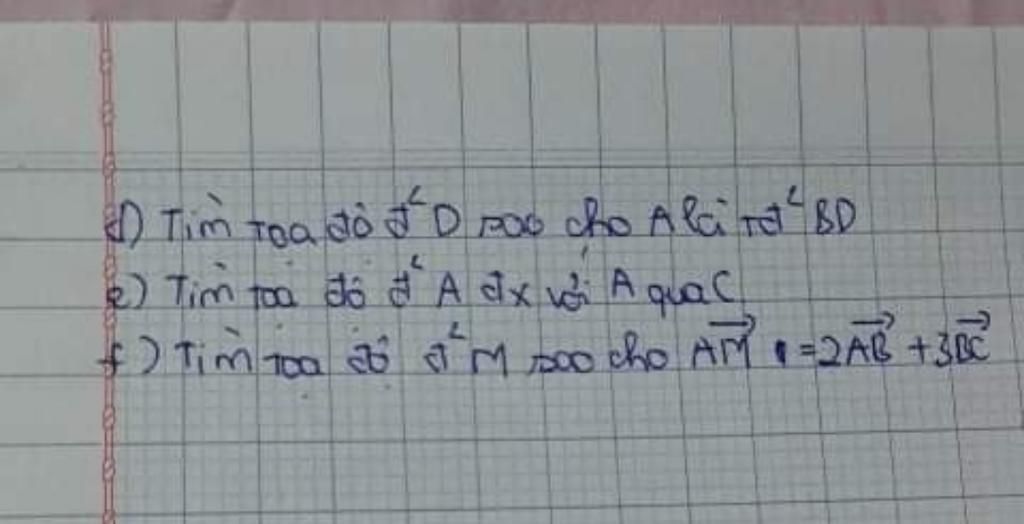 d) Tìm toạ độ đ² D sao cho A là tđ² BD
e) Tìm toạ độ đ² A đx với A qua C
f) Tìm toạ độ đ² M sao cho $\overrightarrow{AM} = 2\overrightarrow{AB} + 3\overrightarrow{BC}$